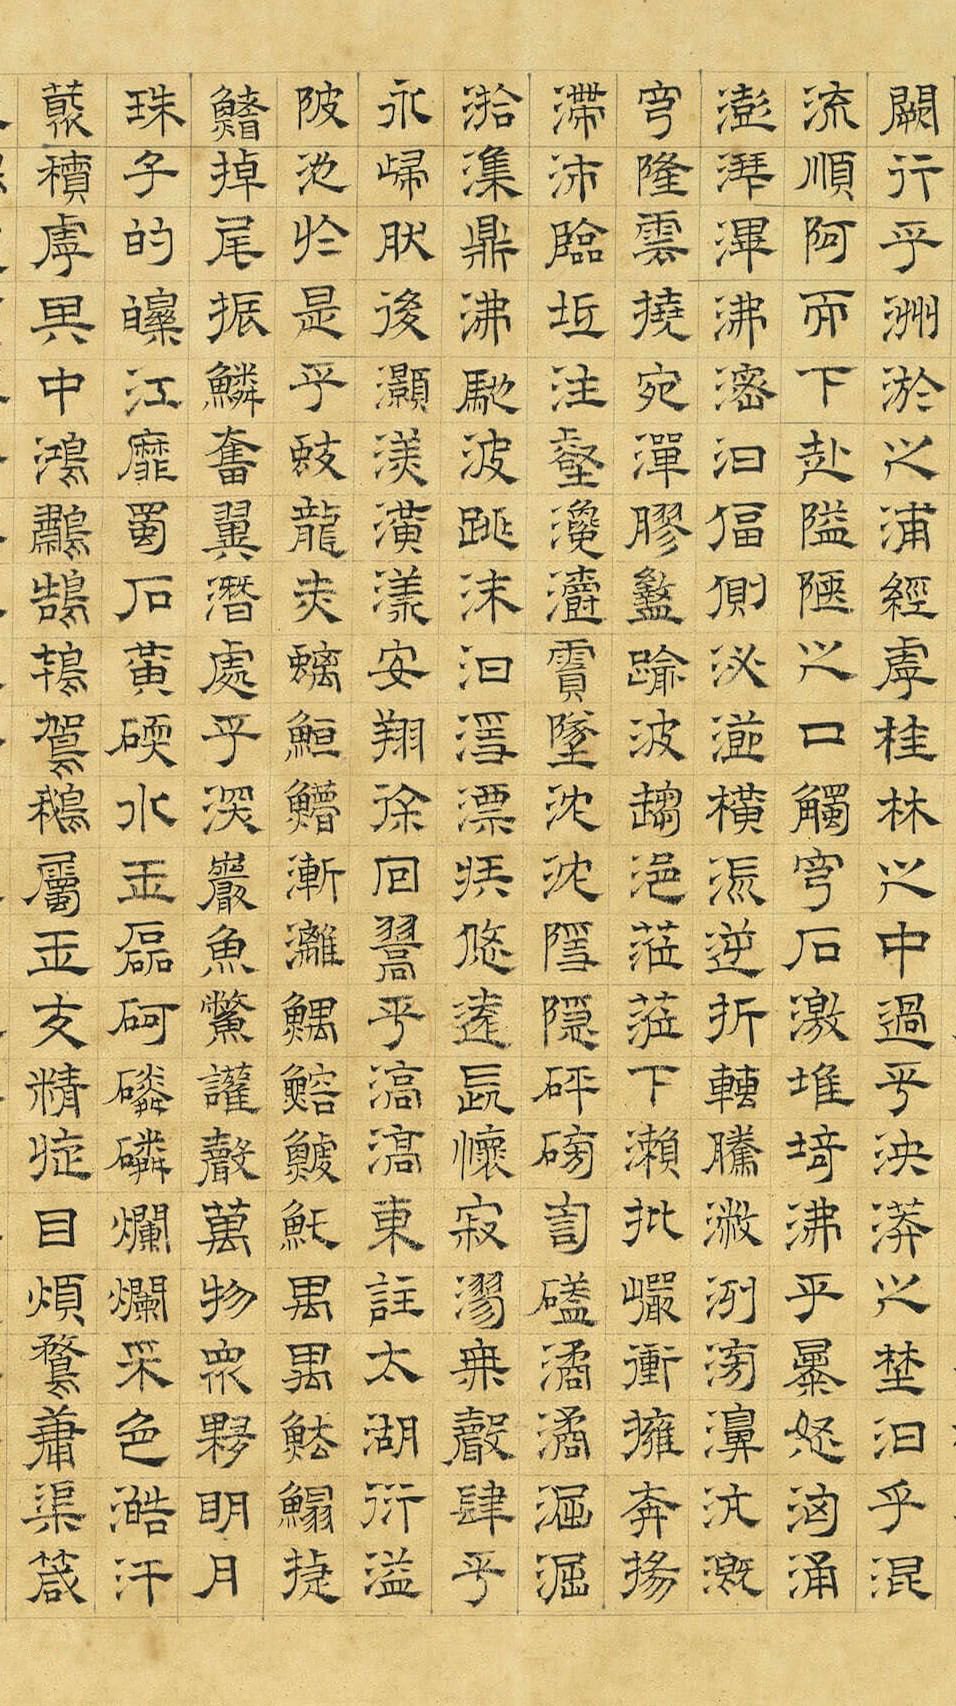 闕行乎洲淤之浦經虖桂林之中過乎泱漭之埜汩乎混
流順阿而下赴隘陿之口觸穹石激堆埼沸乎暴怒洶涌
澎湃滭沸滵汩偪側泌瀄橫流逆折轉騰潎洌滂濞沆溉
穹隆雲撓宛潬膠盭踰波趨浥蒞蒞下瀨批巖衝擁奔揚
滯沛臨坻注壑瀺灂霣墜沈沈隱隱砰磅訇磕潏潏淈淈
湁潗鼎沸馳波跳沫汩㴔漂疾悠遠長懷寂漻無聲肆乎
永歸肰後灝溔潢漾安翔徐回翯乎滈滈東註太湖衍溢
陂池於是乎蛟龍赤螭䱭䲛漸灕鰅鰫鰬魠禺禺魼鰨揵
鰭掉尾振鱗奮翼潛處乎深巖魚鱉讙聲萬物眾夥明月
珠子的皪江靡蜀石黃碝水玉磊砢磷磷爛爛采色澔汗
藂積虖其中鴻鷫鵠鴇鴐鵝屬玉交精旋目煩鶩庸渠箴